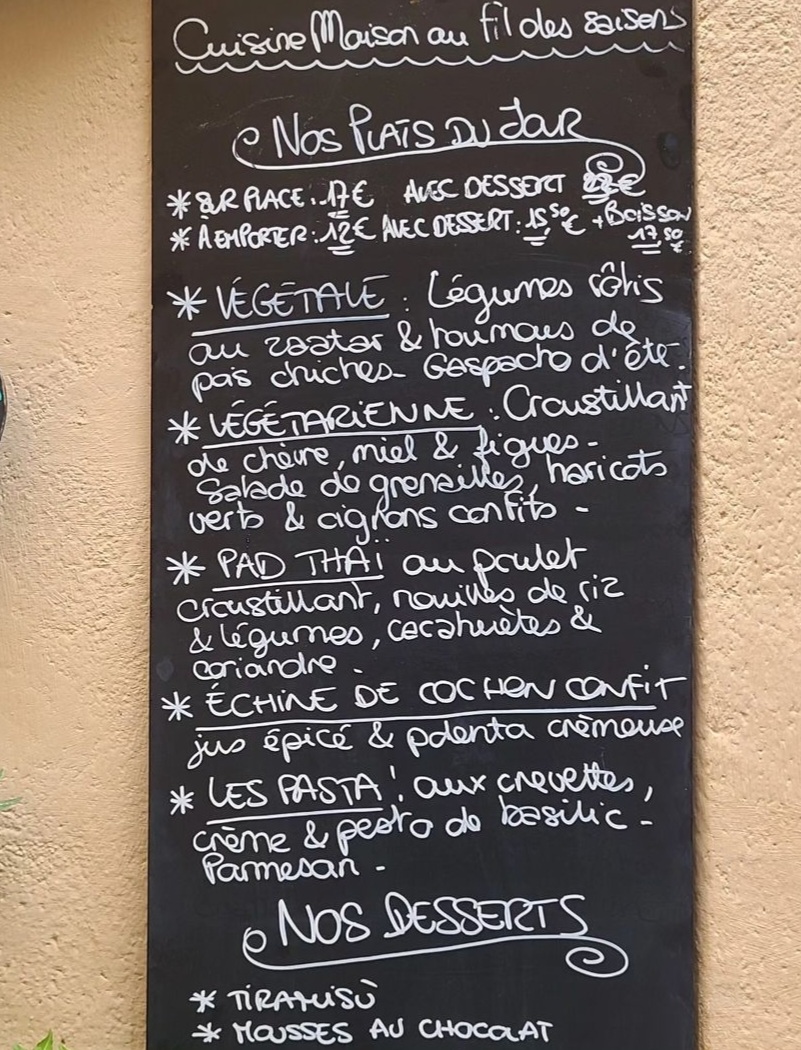 Cuisine Maison au fil des saisons
Nos PLATS DU JOUR
* SUR PLACE : 17€ AVEC DESSERT 22€
* À EMPORTER : 12€ AVEC DESSERT : 15,50€ + BOISSON 17,50€
* VÉGÉTALE : Légumes rôtis
au zaatar & houmous de
pois chiches - Gaspacho d'été.
* VÉGÉTARIENNE : Croustillant
de chèvre, miel & figues -
Salade de grenailles, haricots
verts & oignons confits -
* PAD THAÏ au poulet
croustillant, nouilles de riz
& légumes, cacahuètes &
coriandre.
* ÉCHINE DE COCHON CONFIT
jus épicé & polenta crèmeuse
* LES PASTA ! aux crevettes,
crème & pesto de basilic -
Parmesan -
NOS DESSERTS
* TIRAMISÙ
* MOUSSES AU CHOCOLAT